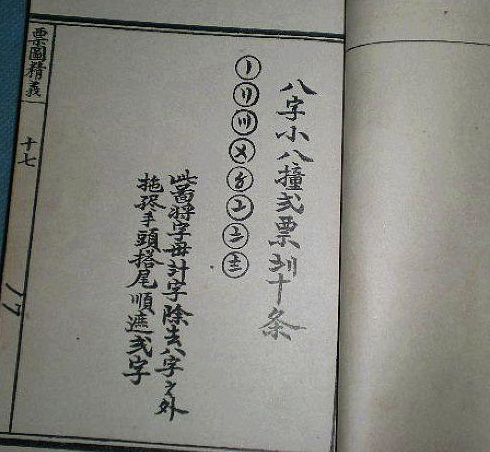 八字小八撞弍票十条
〡
〢
〣
〤
〥
〦
〧
〨
此啚将字母計字除去八字之外
拖手頭搭尾順遞弍字
票圖精義
十七
17